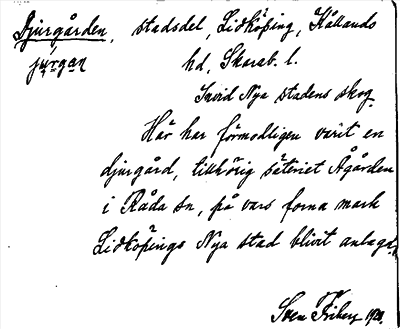 Djurgården, stadsdel, Lidköping, Kållands
júrgan hd, Skarab. l.
Invid Nya stadens skog.
Här har förmodligen varit en
djurgård, tillhörig säteriet Ågården
i Råda sn, på vars forna mark
Lidköpings Nya stad blivit anlagd.
Sven Friberg